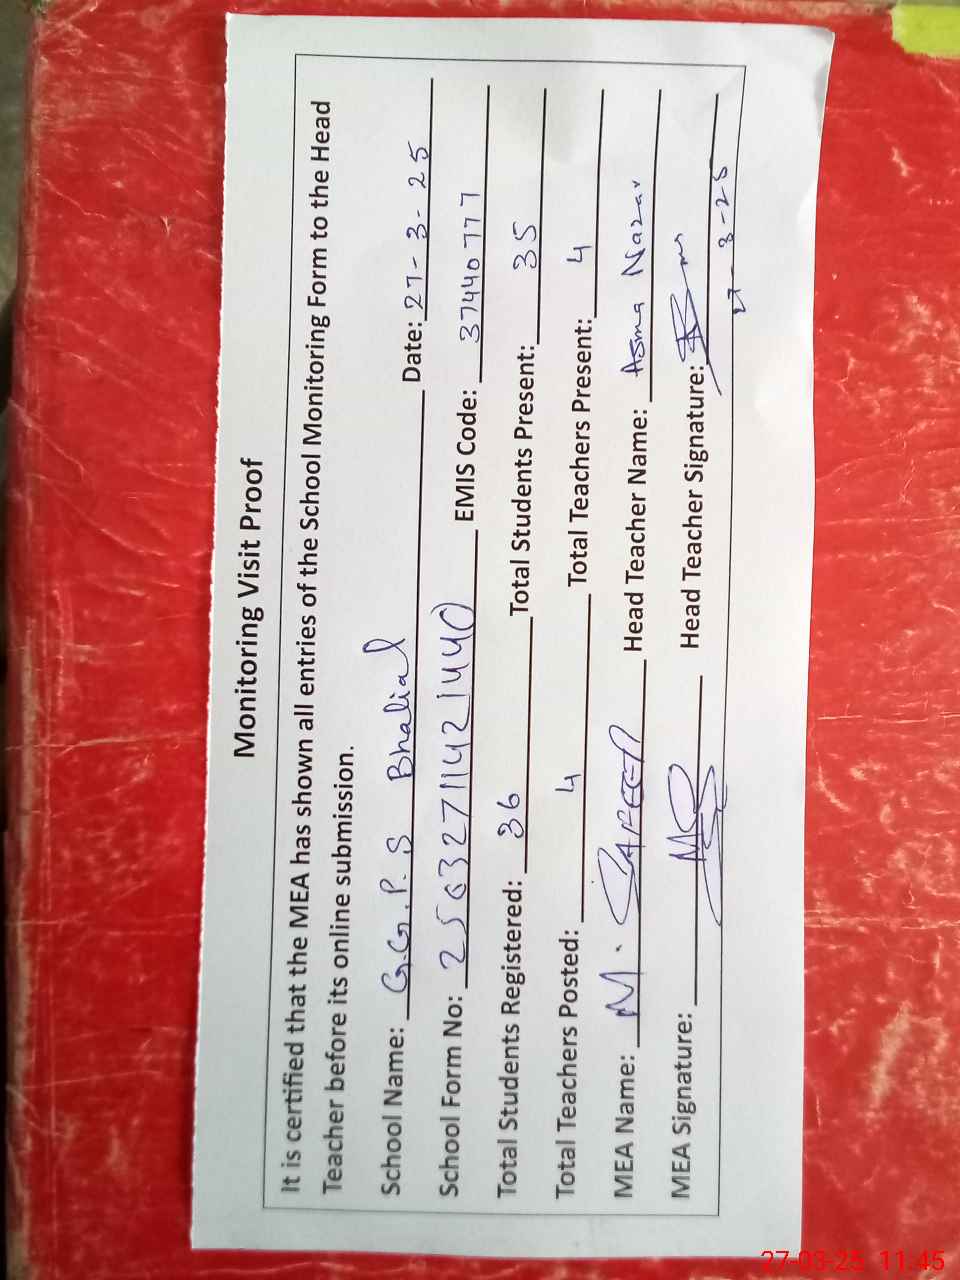 Monitoring Visit Proof
It is certified that the MEA has shown all entries of the School Monitoring Form to the Head
Teacher before its online submission.
School Name: G.G.P.S Bhalial Date: 27-3-25
School Form No: 25632711421440 EMIS Code: 37440777
Total Students Registered: 36 Total Students Present: 35
Total Teachers Posted: 4 Total Teachers Present: 4
MEA Name: M. SAFEER Head Teacher Name: Asma Nazar
MEA Signature: Head Teacher Signature:
27-3-25
27-03-25 11:45